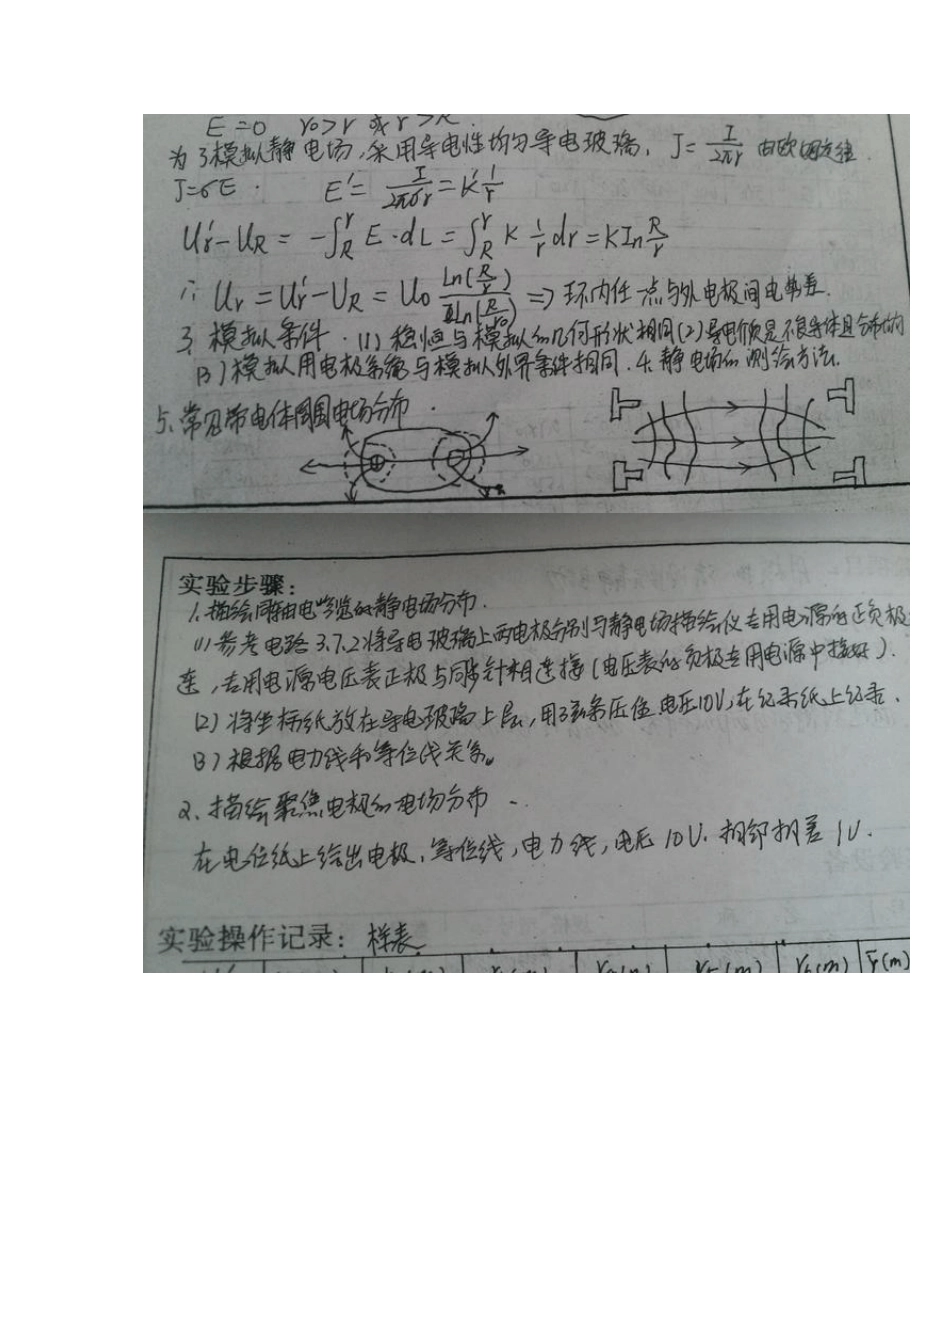 E = 0  r₀>r 或 r>R.
为了模拟静电场,采用导电性均匀导电玻璃, J = I/2πr 由欧姆定律.
J=σE. E′ = I/2πσr = K′ 1/r
U′r - UR = -∫_R^r E·dL = ∫_R^r K 1/r dr = K In R/r
∴ Ur = U′r - UR = U₀ Ln(R/r)/Ln(R/r₀) => 环内任一点与外电极间电势差.
3. 模拟条件. (1) 稳恒与模拟的几何形状相同 (2) 导电质是不良导体且分布均
(3) 模拟用电极系统与模拟外界条件相同. 4. 静电场的测绘方法.
5、常见带电体周围电场分布.
实验步骤:
1. 描绘同轴电缆的静电场分布.
(1) 参考电路 3.7.2将导电玻璃上两电极分别与静电场描绘仪专用电源的正负极
连,专用电源电压表正极与同步针相连接 (电压表的负极专用电源中接好).
(2) 将坐标纸放在导电玻璃上层,用 电压10V,在记录纸上记录.
(3) 根据电力线和等位线关系。
2、描绘聚焦电极的电场分布
在电位纸上绘出电极,等位线,电力线,电压10V. 相邻相差1V.
实验操作记录: 样表
r₅(m) r₆(m) r̄(m)